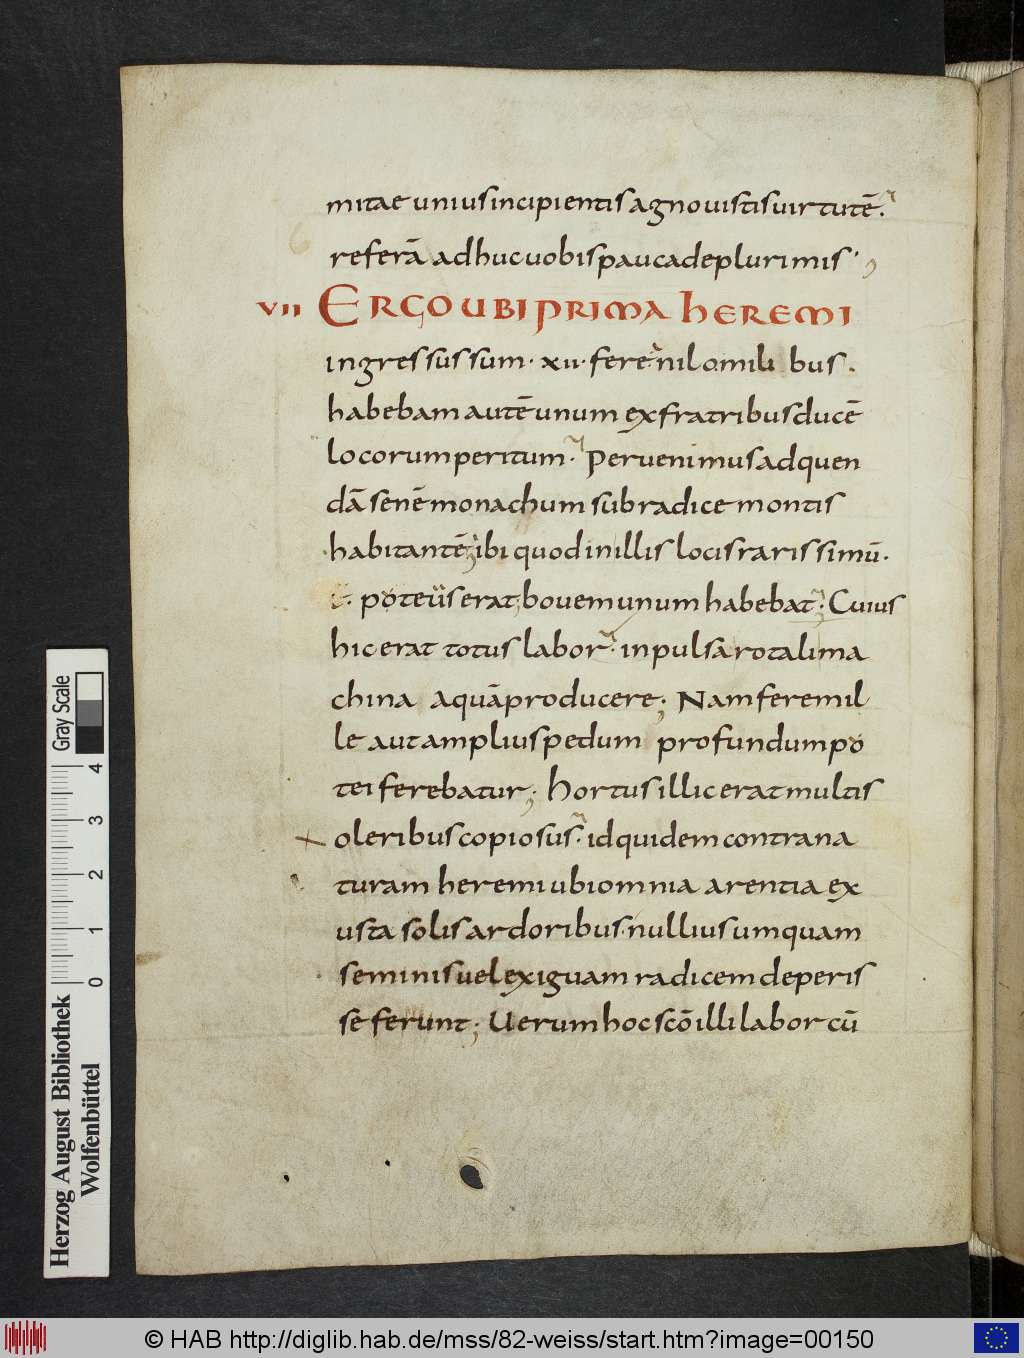 mitae unius incipientis agnouistis uirtutē.
referā adhuc uobis pauca de plurimis
VII ERGO UBI PRIMA HEREMI
ingressus sum · xii · fere nilo mili bus .
habebam autē unum ex fratribus ducē
locorum peritum · Peruenimus ad quen
dā senē monachum sub radice montis
habitantē ibi quod in illis locis rarissimū ·
poteus erat bouem unum habebat · Cuius
hic erat totus labor · inpulsa rotali ma
china aquā producere ; Nam fere mil
le aut amplius pedum profundum po
tei ferebatur ; Hortus illic erat multis
oleribus copiosus · id quidem contra na
turam heremi ubi omnia arentia ex
usta solis ardoribus · nullius umquam
seminis uel exiguam radicem deperis
se ferunt ; Uerum hoc scō illi labor cū
Herzog August Bibliothek
Wolfenbüttel
Gray Scale
0 1 2 3 4
© HAB http://diglib.hab.de/mss/82-weiss/start.htm?image=00150